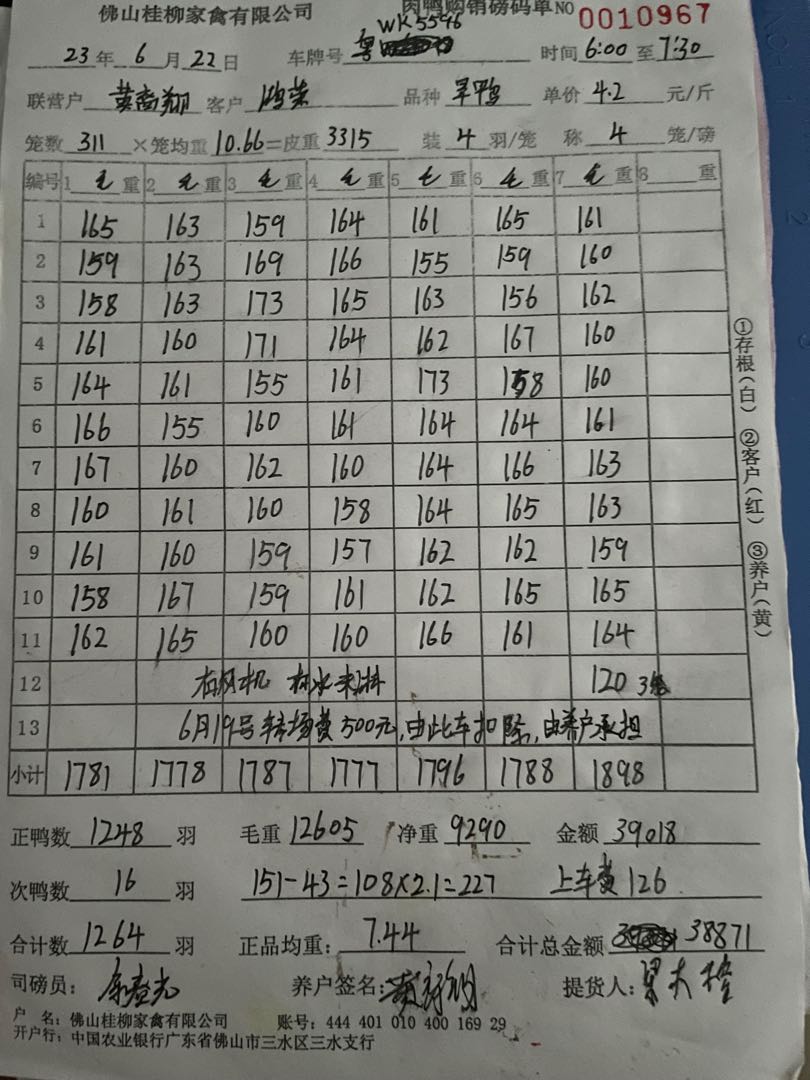 佛山桂柳家禽有限公司 肉鸭购销磅码单 NO 0010967
WK5596
23 年 6 月 22 日 车牌号 粤 时间 6:00 至 7:30
联营户 黄裔翔 客户 鸿荣 品种 旱鸭 单价 4.2 元/斤
笼数 311 ×笼均重 10.66=皮重 3315 装 4 羽/笼 称 4 笼/磅
编号 1 毛 重 2 毛 重 3 毛 重 4 毛 重 5 毛 重 6 毛 重 7 毛 重 8 重
1 165 163 159 164 161 165 161
2 159 163 169 166 155 159 160
3 158 163 173 165 163 156 162
4 161 160 171 164 162 167 160
5 164 161 155 161 173 158 160
6 166 155 160 161 164 164 161
7 167 160 162 160 164 166 163
8 160 161 160 158 164 165 163
9 161 160 159 157 162 162 159
10 158 167 159 161 162 165 165
11 162 165 160 160 166 161 164
12 有风机 有水 料 120 3笼
13 6月19号转场费500元,由此车扣除,由养户承担
小计 1781 1778 1787 1777 1796 1788 1898
正鸭数 1248 羽 毛重 12605 净重 9290 金额 39018
次鸭数 16 羽 151-43=108×2.1=227 上车费 126
合计数 1264 羽 正品均重: 7.44 合计总金额 38871
司磅员: 养户签名: 提货人:
户 名: 佛山桂柳家禽有限公司 账号: 444 401 010 400 169 29
开户行: 中国农业银行广东省佛山市三水区三水支行
①存根(白) ②客户(红) ③养户(黄)